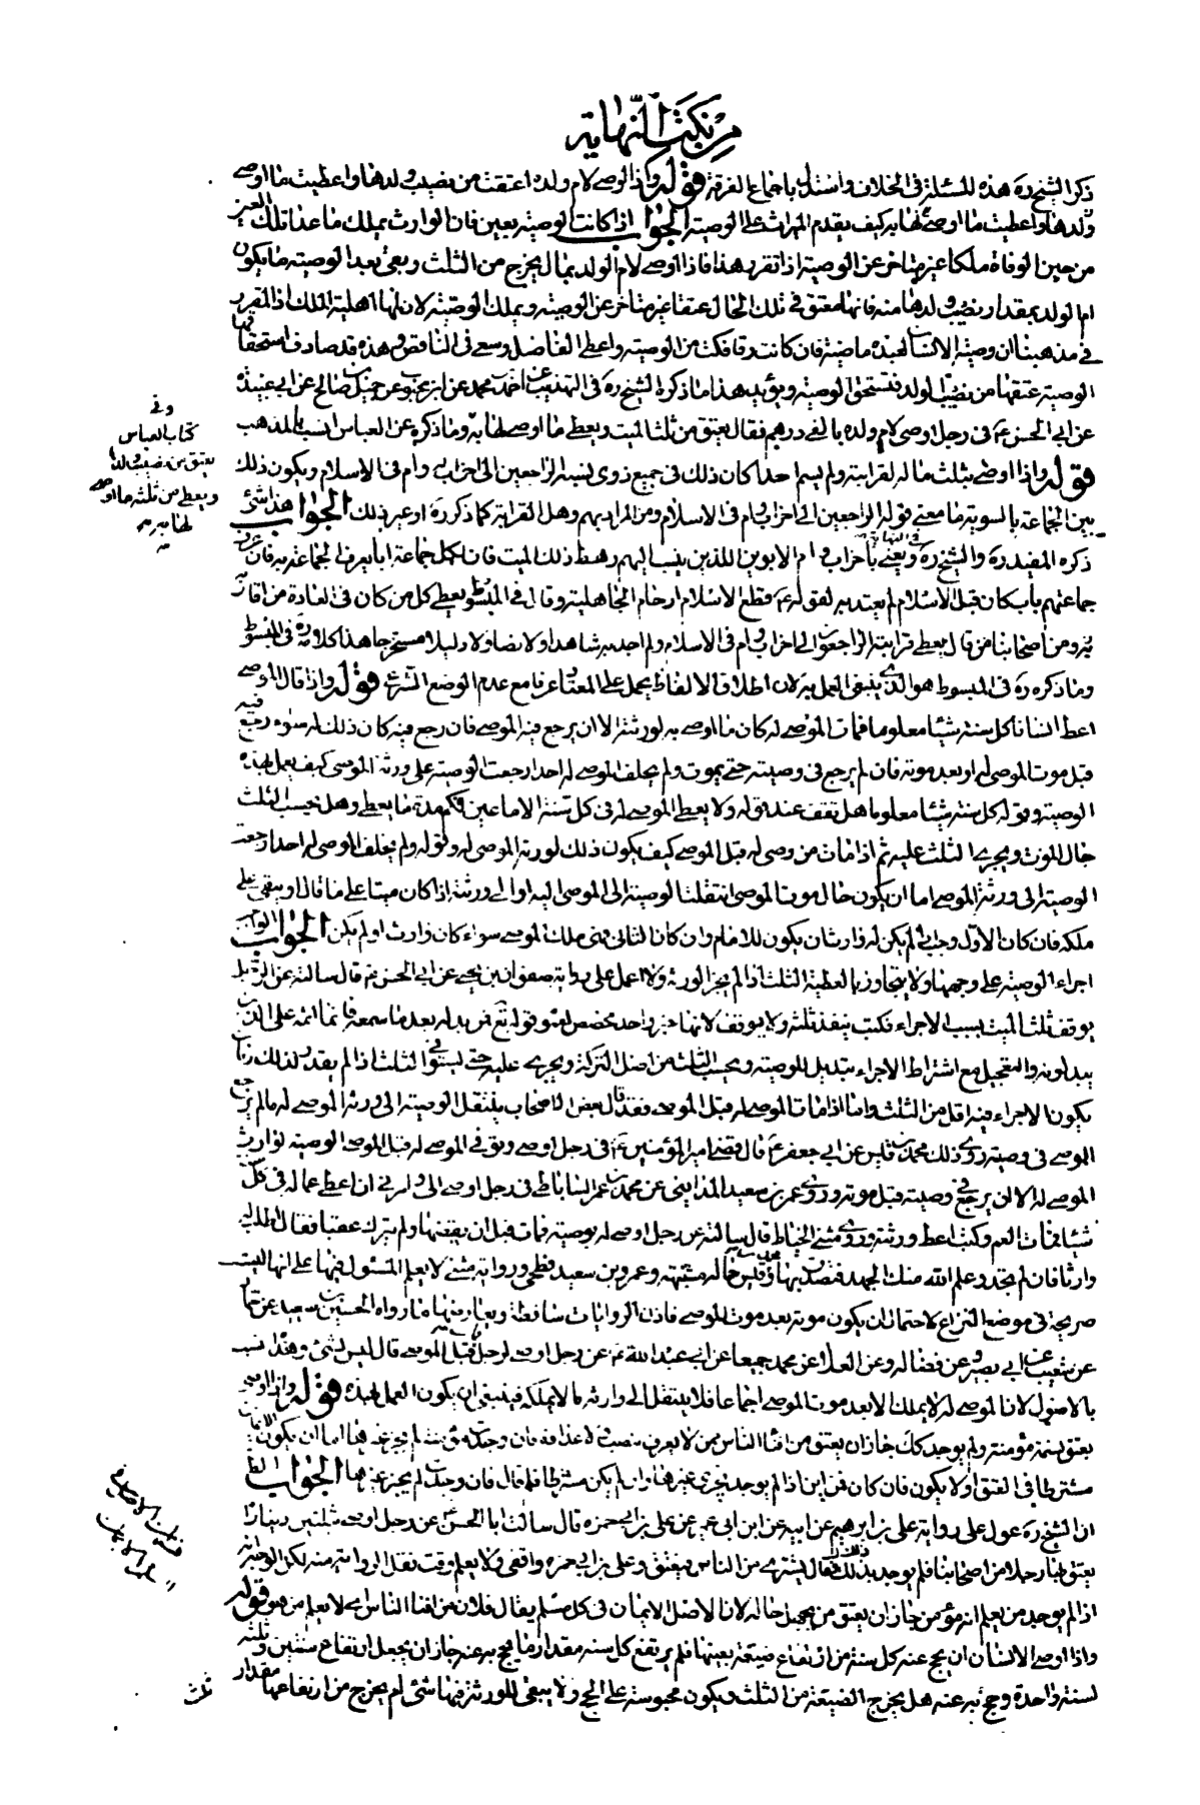 من نكت النهاية
ذكر الشيخ ره هذه المسئلة في الخلاف واستدل باجماع الفرقة قوله وكذا لو وصى لام ولده اعتقت من نصيب ولدها واعطيت ما اوصى
ولدها واعطيت ما اوصى لها به كيف يقدم الميراث على الوصية الجواب اذا كانت الوصية بعين فان الوارث يملك ما عدا تلك العين
من حين الوفاة ملكا غير متاخر عن الوصية اذا تقرر هذا فاذا اوصى لام الولد بمال يخرج من الثلث وبقى بعد الوصية ما يكون
ام الولد بمقدار نصيب ولدها منه فانها تعتق في تلك الحال عتقا غير متاخر عن الوصية وتملك الوصية لان لها اهلية الملك اذ المقرر
في مذهبنا ان وصية الانسان لعبده ماضية فان كانت وفاقكت من الوصية واعطى الفاضل وسعى في الناقص وهذه قد صادف استحقاقها
الوصية عتقها من نصيب الولد فتستحق الوصية ويؤيد هذا ما ذكره الشيخ ره في التهذيب عن احمد بن محمد عن ابن محبوب عن جميل بن صالح عن ابي عبيدة
عن ابي الحسن ع في رجل اوصى لام ولده بالفي درهم فقال يعتق من ثلث الميت ويعطى ما اوصى لها به وما ذكره عن العباس انسب بالمذهب
قوله واذا اوصى بثلث ماله لقرابته ولم يسم احدا كان ذلك في جميع ذوي نسبه الراجعين الى اخر اب وام في الاسلام ويكون ذلك
بين الجماعة بالسوية ما معنى قوله الراجعين الى اخر اب وام في الاسلام ومن المراد بهم وهل القرابة كما ذكر ره او غير ذلك الجواب هذا شئ
ذكره المفيد ره والشيخ ره ويعني باخر اب وام الابوين اللذين ينسب اليهم رهط ذلك الميت فان لكل جماعة ابا يعرف الجماعة به فان عرف
جماعتهم باب كان قبل الاسلام لم يعتد به لقوله ع قطع الاسلام ارحام الجاهلية وقال في المبسوط يعطى كل من كان في العادة من اقاربه
ومن اصحابنا من قال يعطى قرابته الراجعون الى اخر اب وام في الاسلام ولم اجد به شاهدا ولا نصا ولا دليلا مستخرجا هذا كلامه ره في المبسوط
وما ذكره ره في المبسوط هو الذي ينبغي العمل به لان اطلاق الالفاظ يحمل على المعتاد عرفا مع عدم الوضع الشرعي قوله واذا قال الموصى
اعط انسانا كل سنة شيئا معلوما فمات الموصى له كان ما اوصى به لورثته الا ان يرجع فيه الموصى فان رجع فيه كان ذلك له سواء رجع فيه
قبل موت الموصى له او بعد موته فان لم يرجع في وصيته حتى يموت ولم يخلف الموصى له احدا رجعت الوصية على ورثة الموصى كيف يعمل بهذه
الوصية وقوله كل سنة شيئا معلوما هل تقف عند قوله ولا يعطى الموصى له في كل سنة الا ما عين فكم مدة ما يعطى وهل يحسب الثلث
حال الموت ويجري الثلث عليه ثم اذا مات من وصى له قبل الموصى كيف يكون ذلك لورثة الموصى له وقوله ولم يخلف الموصى له احدا رجعت
الوصية الى ورثة الموصى اما ان يكون حال موت الموصى انتقلت الوصية الى الموصى اليه او الى ورثته اذا كان ميتا على ما قال او يبقى على
ملكه فان كان الاول وجب اذا لم يكن له وارث ان يكون للامام وان كان الثاني فهي ملك الموصى سواء كان وارث او لم يكن الجواب الواجب
اجراء الوصية على وجهها ولا يتجاوز بالعطية الثلث اذا لم يجز الورثة ولا اعمل على رواية صفوان بن يحيى عن ابي الحسن ع قال سالته عن الرجل
يوقف ثلث الميت بسبب الاجراء فكتب ينفذ ثلثه ولا يوقف لانها خبر واحد مخصص لعموم قوله تع فمن بدله بعد ما سمعه فانما اثمه على الذين
يبدلونه والتعجيل مع اشتراط الاجراء تبديل للوصية ويحسب الثلث من اصل التركة ويجري عليه حتى يستوفي الثلث اذا لم يقدر لذلك زمان
يكون الاجراء فيه اقل من الثلث واما اذا مات الموصى له قبل الموصى فقد قال بعض الاصحاب ينتقل الوصية الى ورثة الموصى له ما لم يرجع
الموصى في وصيته روى ذلك محمد بن قيس عن ابي جعفر ع قال قضى امير المؤمنين ع في رجل اوصى وتوفى الموصى له قبل الموصى الوصية لوارث
الموصى له الا ان يرجع في وصيته قبل موته وروى عمرو بن سعيد المدايني عن محمد بن عمر الساباطي في رجل اوصى الى وامرني ان اعطى عما له في كل سنة
شيئا فمات العم فكتب اعط ورثته وروى مثنى الحناط قال سالته عن رجل اوصى له بوصية فمات قبل ان يقبضها ولم يترك عقبا فقال اطلب له
وارثا فان لم تجد وعلم الله منك الجهد فتصدق بها ومحمد بن قيس حاله مشتبهة وعمرو بن سعيد فطحي ورواية مثنى لا يعلم المسئول فيها على انها ليست
صريحة في موضع النزاع لاحتمال ان يكون موته بعد موت الموصى فاذن الروايات ساقطة ويعارضها ما رواه الحسين بن سعيد عن حماد
عن شعيب عن ابي بصير وعن فضالة وعن العلا عن محمد جميعا عن ابي عبد الله ع عن رجل اوصى لرجل فمات قبل الموصى قال ليس بشئ وهذا انسب
بالاصول لان الموصى له لا يملك الا بعد موت الموصى اجماعا فلا ينتقل الى وارثه ما لا يملكه فينبغي ان يكون العمل بهذه قوله واذا اوصى
بعتق نسمة مؤمنة ولم يوجد كك جاز ان يعتق من افناء الناس من لا يعرف بنصب
مشترطا في العتق او لا يكون فان كان فمن اين اذا لم يوجد يجزى غيرها وان لم يكن مشترطا فلم قال فان وجدت لم يجز غيرها الجواب
ان الشيخ ره عول على رواية علي بن ابراهيم عن ابيه عن ابن ابي عمير عن علي بن ابي حمزة قال سالت ابا الحسن ع عن رجل اوصى بثلثين دينارا
يعتق بها رجلا من اصحابنا فلم يوجد بذلك قال يشترى من الناس فيعتق وعلي بن ابي حمزة واقفي ولا يعلم وقت نقل الرواية منه لكن الوجه انه
اذا لم يوجد من يعلم انه مؤمن جاز ان يعتق من يجهل حاله لان الاصل الايمان في كل مسلم يقال فلان من افناء الناس اي لا يعلم من هو قوله
واذا اوصى الانسان ان يحج عنه كل سنة من ارتفاع ضيعة بعينها فلم يرتفع كل سنة مقدار ما يحج به عنه جاز ان يجعل ارتفاع سنتين وثلثه
لسنة واحدة وحج به عنه هل يخرج الضيعة من الثلث ويكون محبوسة على الحج ولا يبقى للورثة فيها شئ ام يخرج من ارتفاعها مقدار
ثلث
وفي
كتاب العباس
يعتق من نصيب ولدها
ويعطى من ثلثه ما اوصى
لها به